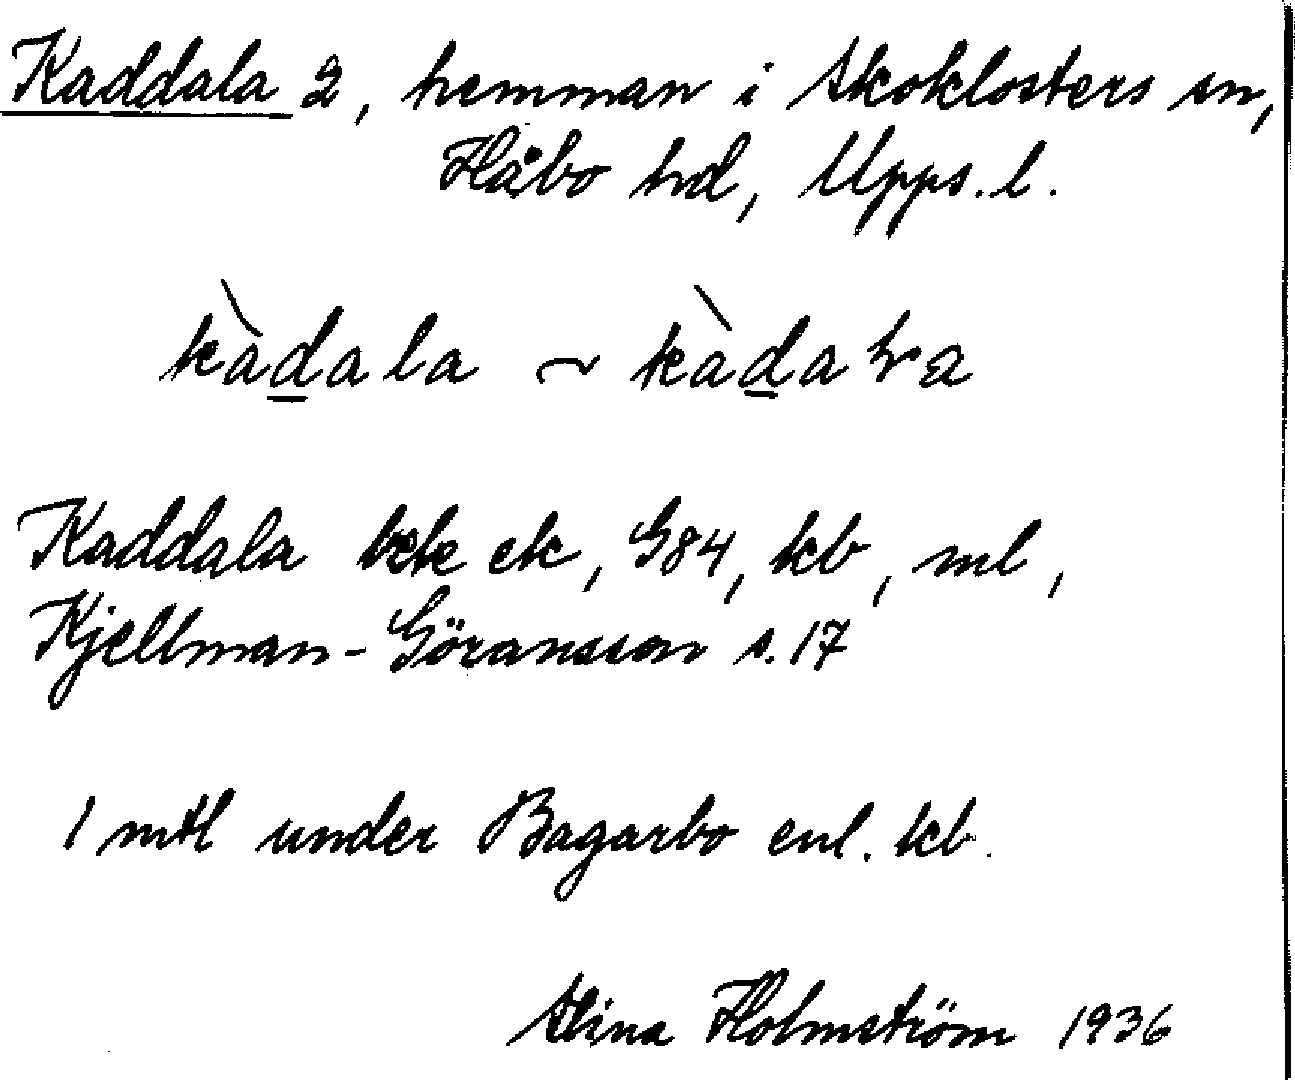 Kaddala 2, hemman i Skoklosters sn,
Håbo hd, Upps. l.
kàd̲ala ~ kàd̲aɽa
Kaddala ek, G84, kb, ml,
Kjellman-Göransson s. 17
1 mtl under Bagarbo enl. kb.
Stina Holmström 1936